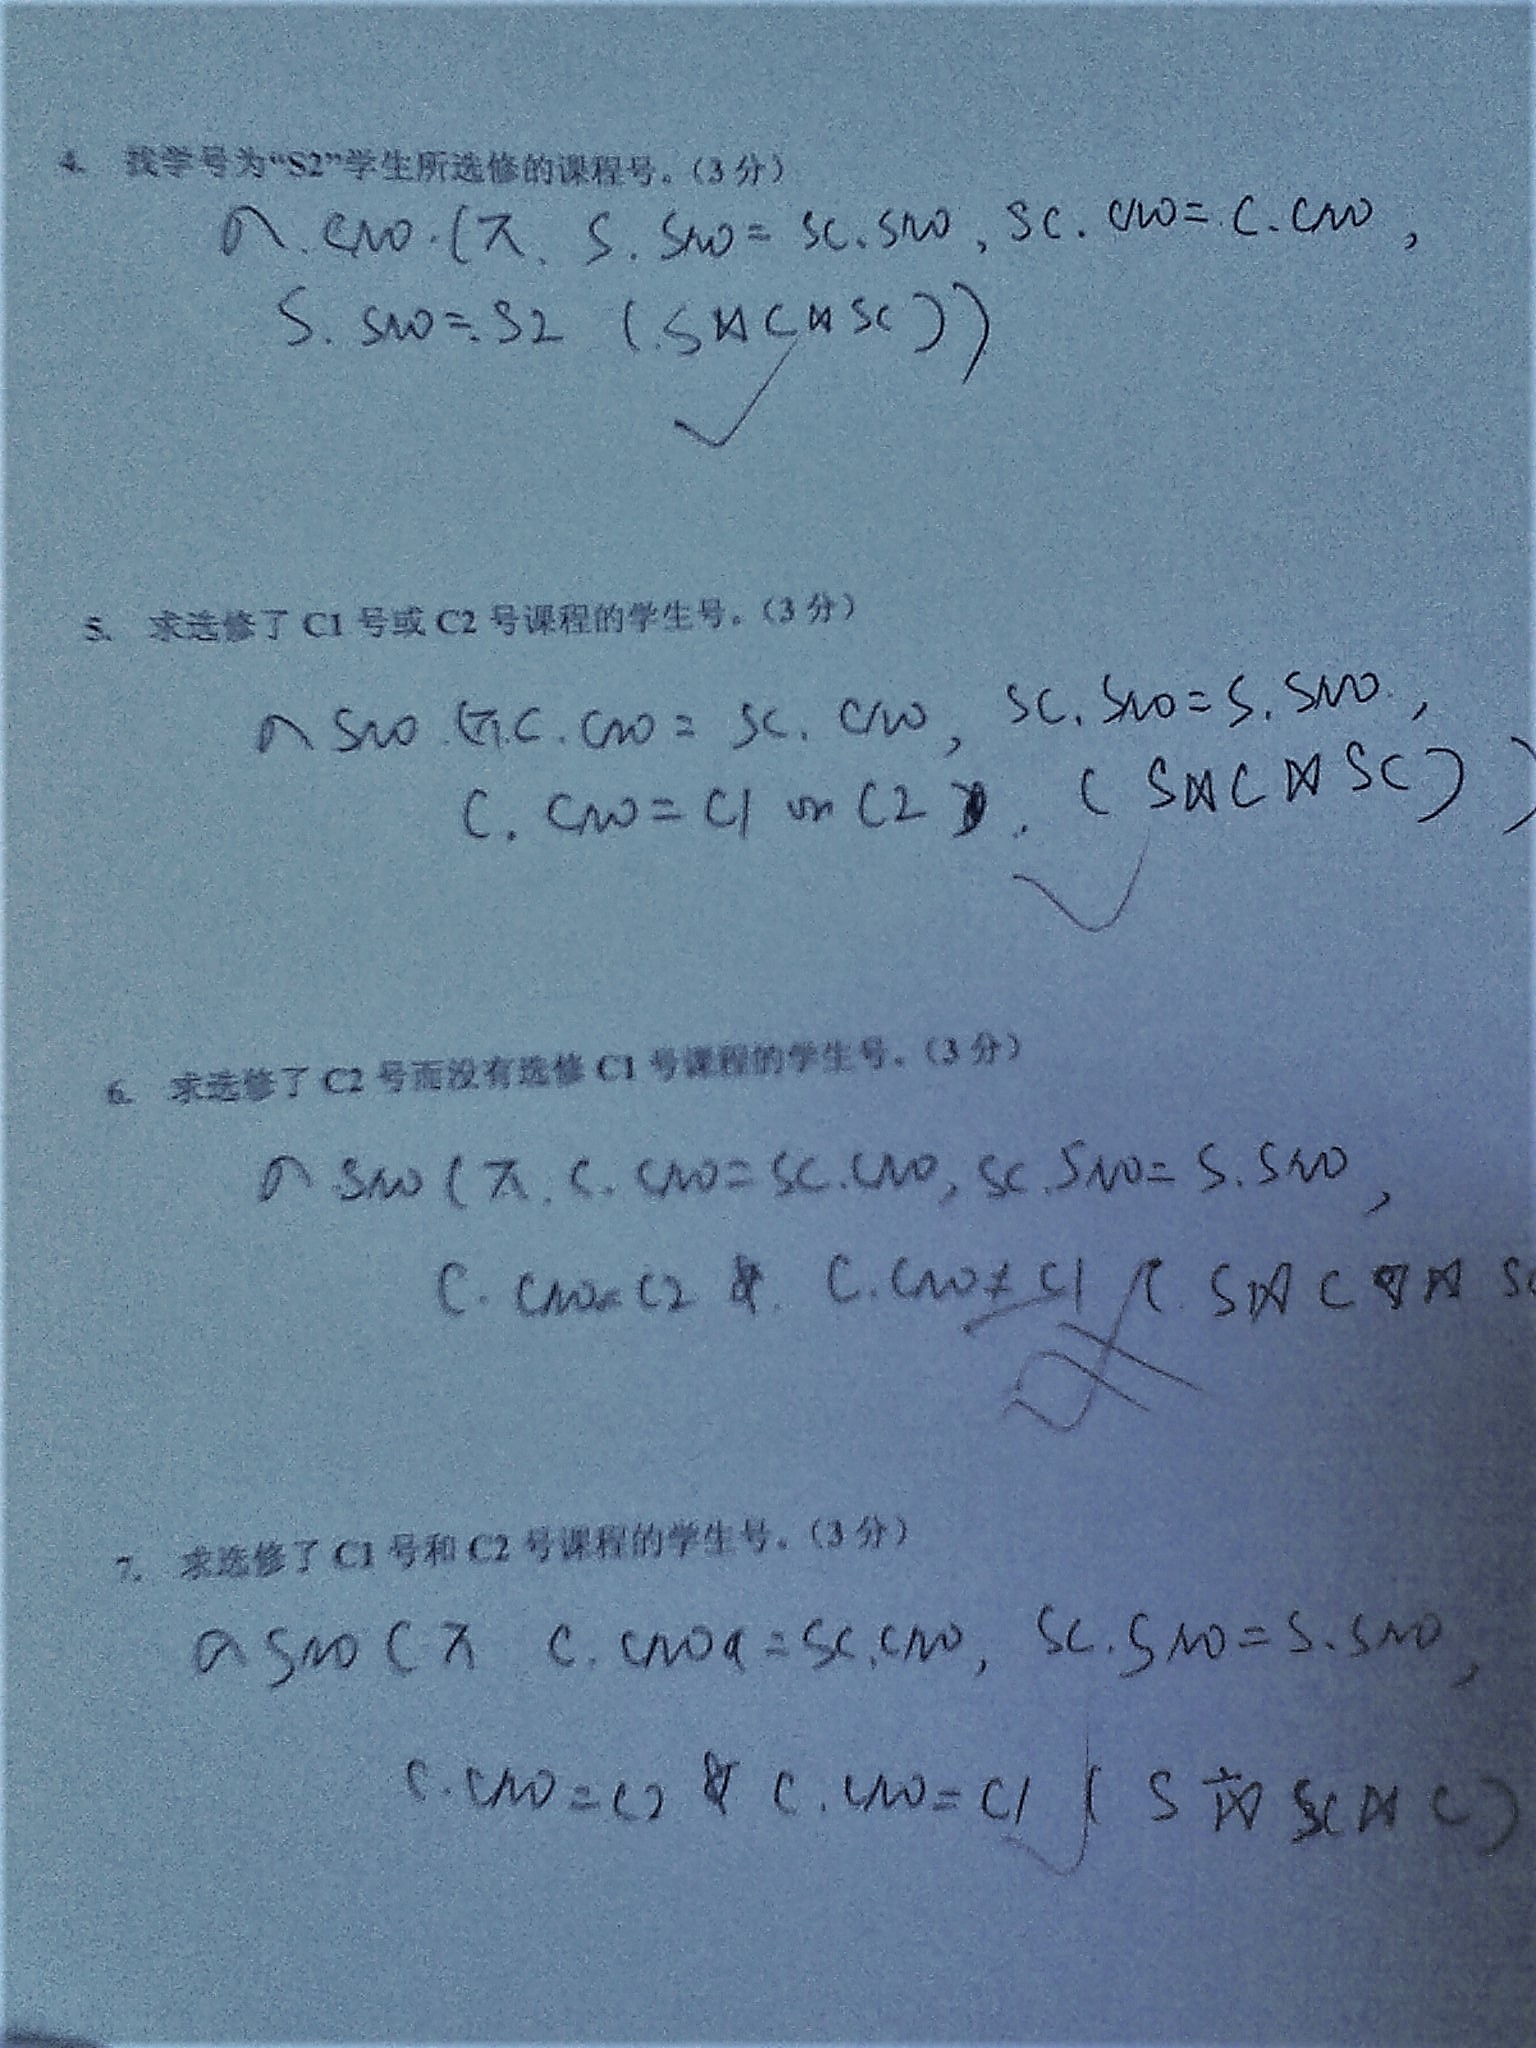 4. 找学号为“S2”学生所选修的课程号。(3分)
σ. cno.(π. S. Sno = SC.sno, SC. cno = C.cno,
S. sno = S2 (S⋈C⋈SC))
5. 求选修了 C1 号或 C2 号课程的学生号。(3分)
σ Sno (π.C.cno = SC. cno, SC.Sno = S.Sno,
C. cno = C1 or C2 . (S⋈C⋈SC))
6. 求选修了 C2 号而没有选修 C1 号课程的学生号。(3分)
σ Sno (π. C. cno = SC.cno, SC.Sno = S.Sno,
C. cno = C2 & C.cno ≠ C1 ( S⋈C⋈ SC
7. 求选修了 C1 号和 C2 号课程的学生号。(3分)
σ Sno (π C. cno = SC.cno, SC.Sno = S.Sno,
C.cno = C2 & C.cno = C1 ( S ⋈ SC⋈C)